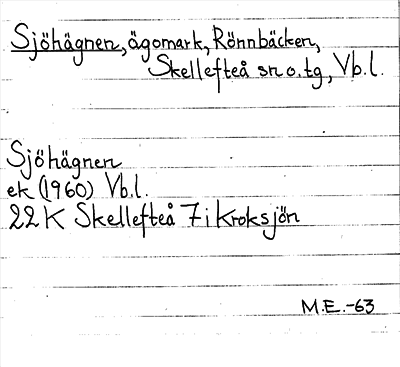 Sjöhägnen, ägomark, Rönnbäcken,
Skellefteå sn o. tg, Vb.l.
Sjöhägnen
ek (1960) Vb.l.
22 K Skellefteå 7 i Kroksjön
M.E.-63